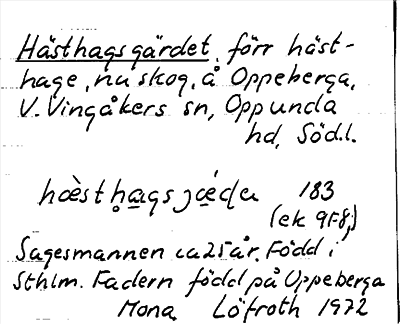 Hästhagsgärdet, förr häst-
hage, nu skog, å Oppeberga,
V. Vingåkers sn, Oppunda
hd, Södl.
hæ̀sthạgsjǽḍu 183
(ek 9F8j)
Sagesmannen ca 25 år. Född i
Sthlm. Fadern född på Oppeberga
Mona Löfroth 1972